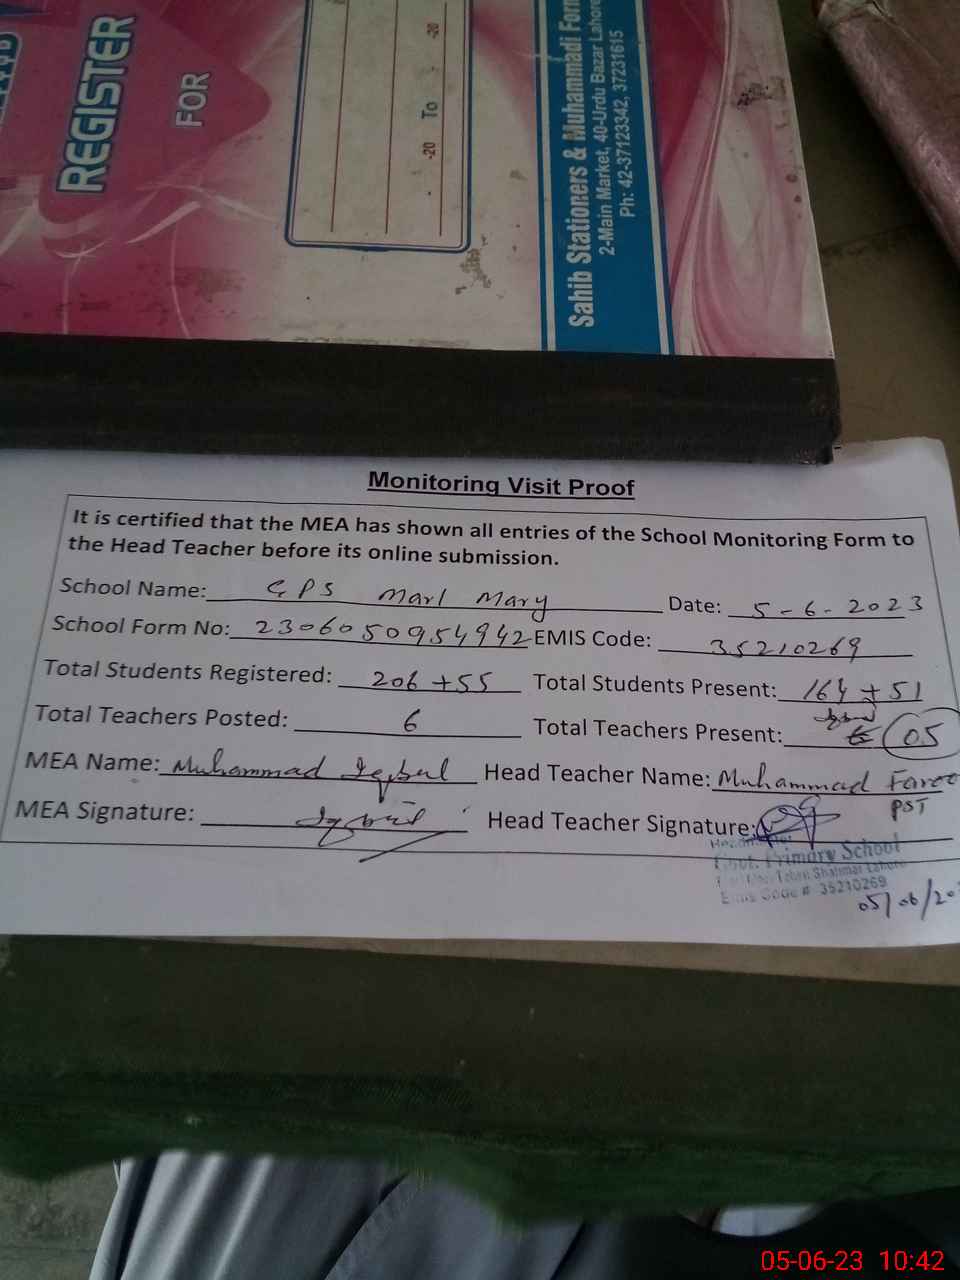 REGISTER
FOR
-20 To -20
Sahib Stationers & Muhammadi Form
2-Main Market, 40-Urdu Bazar Lahore
Ph: 42-37123342, 37231615
Monitoring Visit Proof
It is certified that the MEA has shown all entries of the School Monitoring Form to
the Head Teacher before its online submission.
School Name: GPS Marl Mary Date: 5-6-2023
School Form No: 2306050954942 EMIS Code: 35210269
Total Students Registered: 206 +55 Total Students Present: 164 + 51
Total Teachers Posted: 6 Total Teachers Present: 05
MEA Name: Muhammad Iqbal Head Teacher Name: Muhammad Faroo
PST
MEA Signature: Iqbal Head Teacher Signature:
Govt. Primary School
Shalimar Lahore
Emis Code # 35210269
05/06/20
05-06-23 10:42